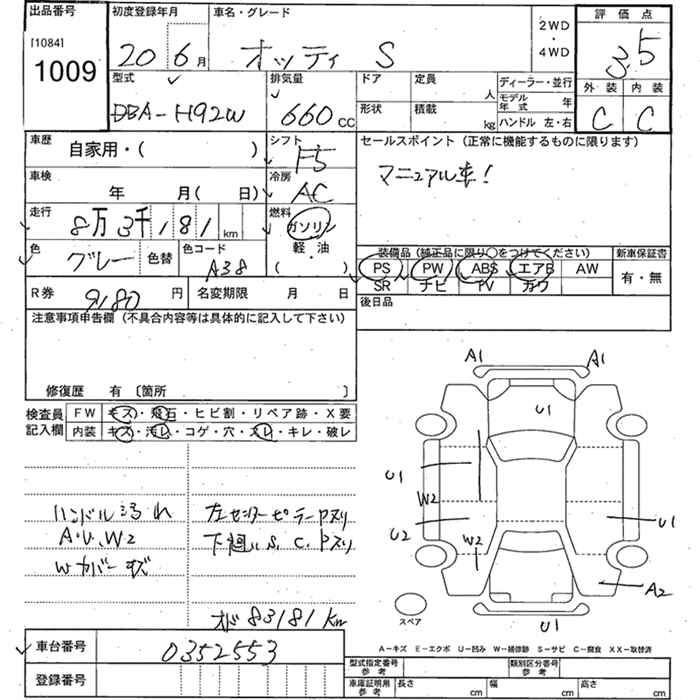 出品番号
[1084]
1009
初度登録年月
20年6月
車名・グレード
オッティ S
2WD
・
4WD
評価点
3.5
外装 内装
C C
型式
DBA-H92W
排気量
660 cc
ドア
定員
人
形状
積載
kg
ディーラー・並行
モデル年式 年
ハンドル 左・右
車歴
自家用・( )
シフト
F5
セールスポイント (正常に機能するものに限ります)
マニュアル車!
車検
年 月( 日)
冷房
AC
走行
8万3千181km
燃料
ガソリン
軽・油
( )
色
グレー
色替
色コード
A38
装備品(純正品に限り○をつけてください)
新車保証書
PS PW ABS エアB AW
SR ナビ TV カワ
有・無
R券
9180円
名変期限 月 日
後日品
注意事項申告欄 (不具合内容等は具体的に記入して下さい)
修復歴 有 〔箇所 〕
検査員
記入欄
FW キズ・飛石・ヒビ割・リペア跡・X要
内装 キズ・汚レ・コゲ・穴・スレ・キレ・破レ
ハンドル汚れ
A.U.W2
Wカバーキズ
左センターピラーPスリ
下廻りS.C.Pスリ
オド83181km
A1
A1
U1
U1
W2
U2
W2
U1
A2
U1
スペア
A-キズ E-エクボ U-凹み W-補修跡 S-サビ C-腐食 XX-取替済
車台番号
0352553
登録番号
型式指定番号
参考
類別区分番号
参考
車庫証明用
参考
長さ cm
幅 cm
高さ cm